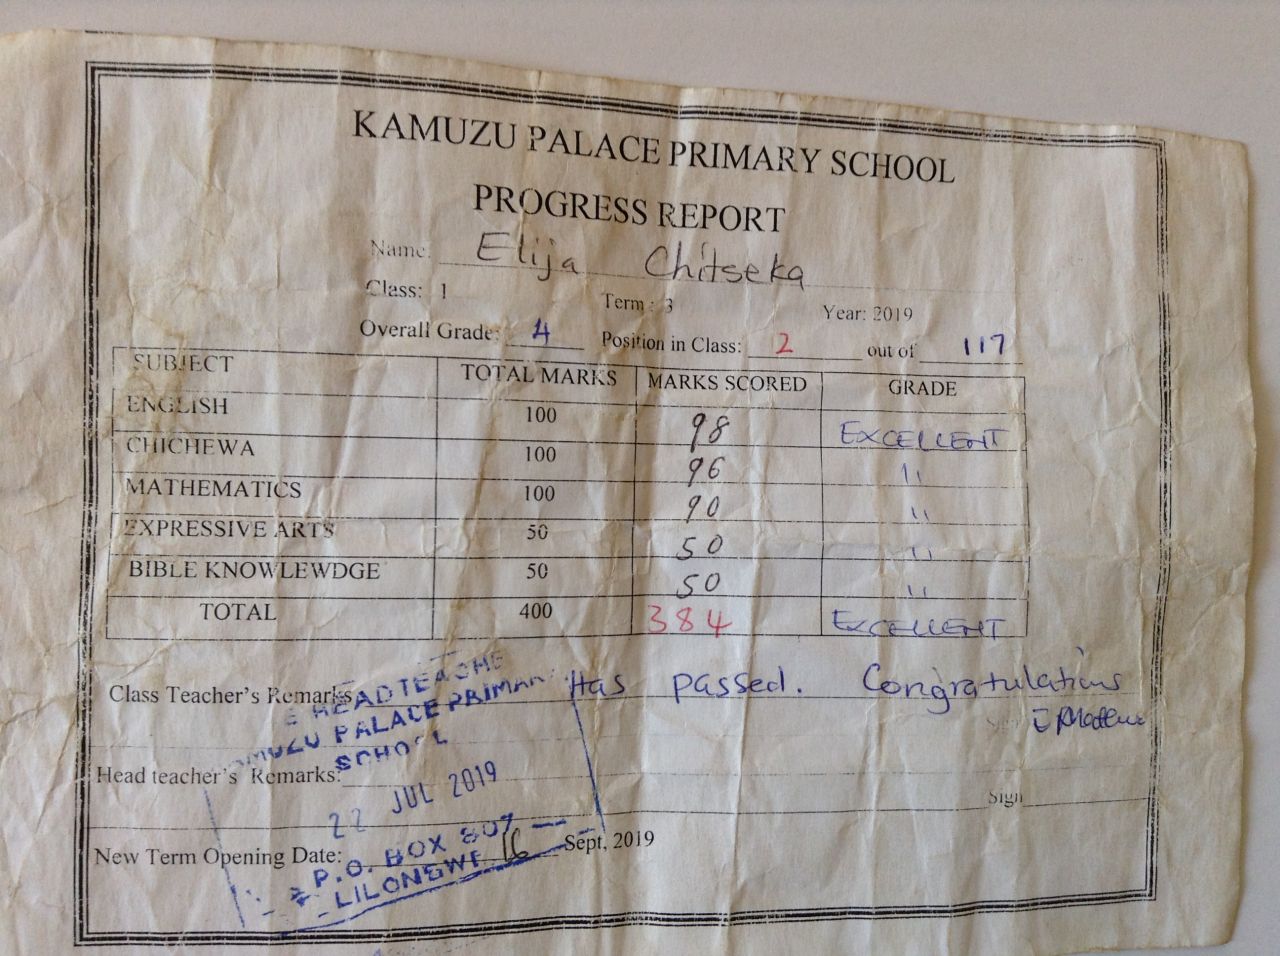 KAMUZU PALACE PRIMARY SCHOOL
PROGRESS REPORT
Name: Elija Chitseka
Class: 1 Term: 3 Year: 2019
Overall Grade: 4 Position in Class: 2 out of 117
SUBJECT TOTAL MARKS MARKS SCORED GRADE
ENGLISH 100 98 EXCELLENT
CHICHEWA 100 96 "
MATHEMATICS 100 90 "
EXPRESSIVE ARTS 50 50 "
BIBLE KNOWLEWDGE 50 50 "
TOTAL 400 384 EXCELLENT
Class Teacher's Remarks Has passed. Congratulations
Head teacher's Remarks:
Sign
New Term Opening Date: 16 Sept, 2019
HEADTEACHE
KAMUZU PALACE PRIMARY
SCHOOL
22 JUL 2019
P.O. BOX 807
LILONGWE